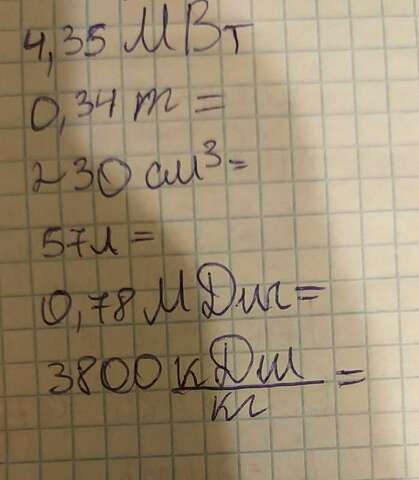 4,35 МВт
0,34 т =
230 см³ =
57л =
0,78 МДж =
3800 кДж/кг =